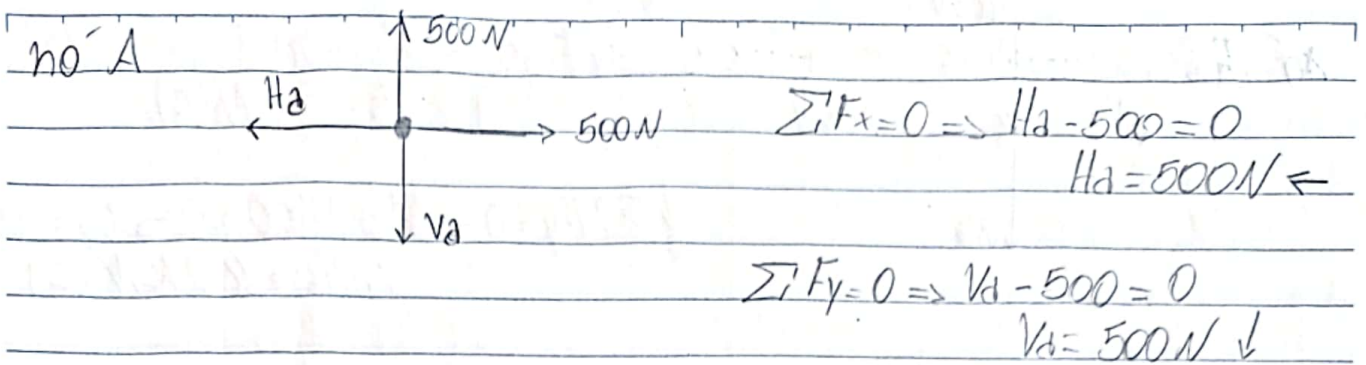 nó A
500N
Ha
500N
Va
ΣFx=0 => Ha-500=0
Ha=500N ←
ΣFy=0 => Va-500=0
Va=500N ↓